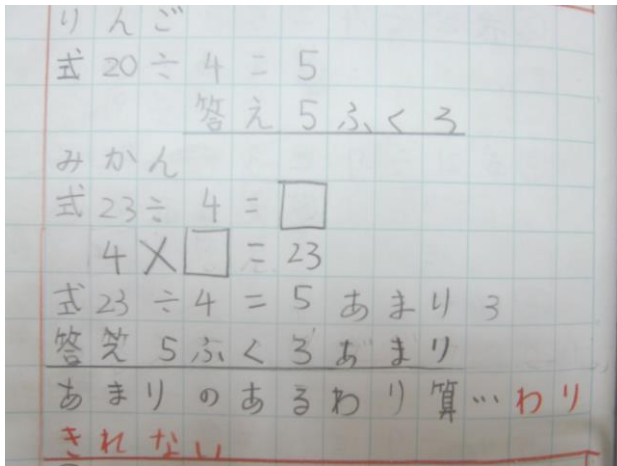 りんご
式20÷4=5
答え5ふくろ
みかん
式23÷4=□
4×□=23
式23÷4=5あまり3
答5ふくろあまり
あまりのあるわり算…わり
きれない